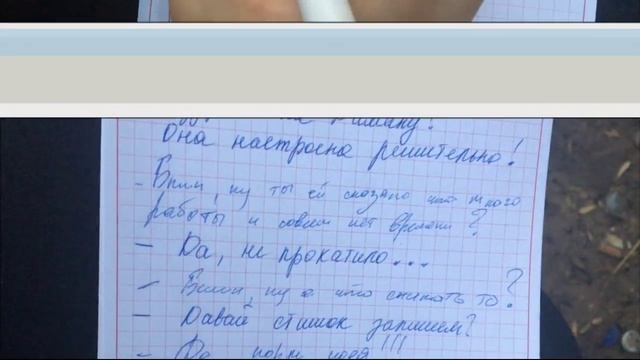 Она настроена решительно!
- Блин, ну ты ей сказала что много
работы и совсем нет времени?
- Да, не прокатило...
- Блин, ну а что снимать то?
- Давай стишок запишем?
- Да